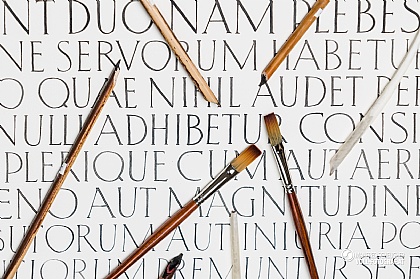 NT DUO NAM PLEBES
NE SERVORUM HABETU
O QUAE NIHIL AUDET PER
NULLI ADHIBETU CONSI
PLERIQUE CUM AUT AER
ENO AUT MAGNITUDINE
UTORUM AUT INIURIA PO